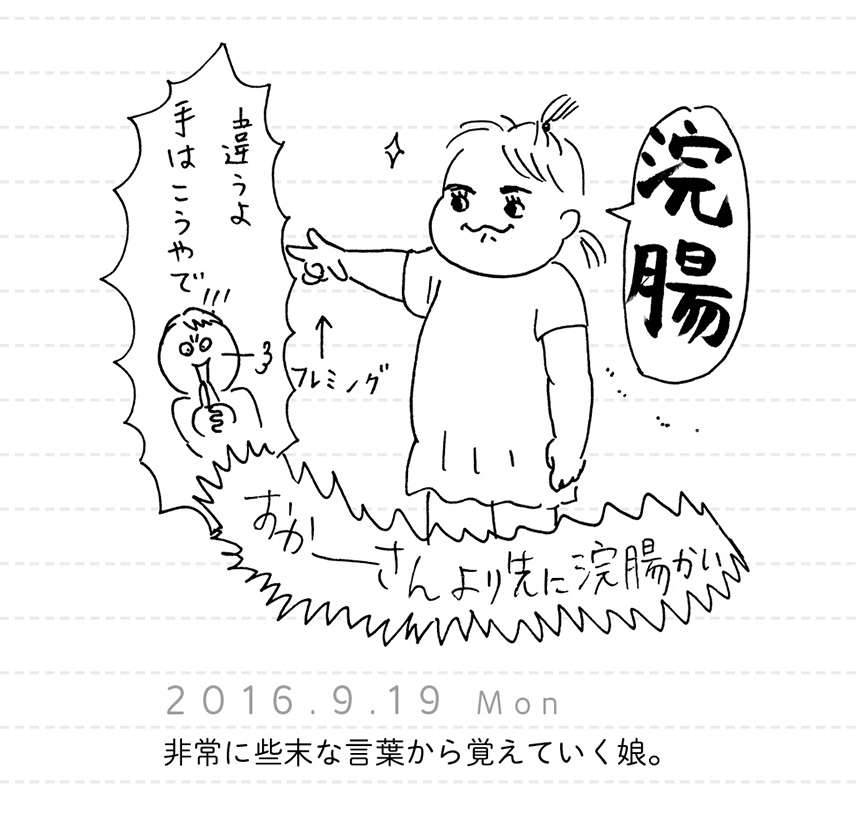 浣腸
違うよ
手はこうやで
フレミング
おかーさんより先に浣腸かい
2016.9.19 Mon
非常に些末な言葉から覚えていく娘。